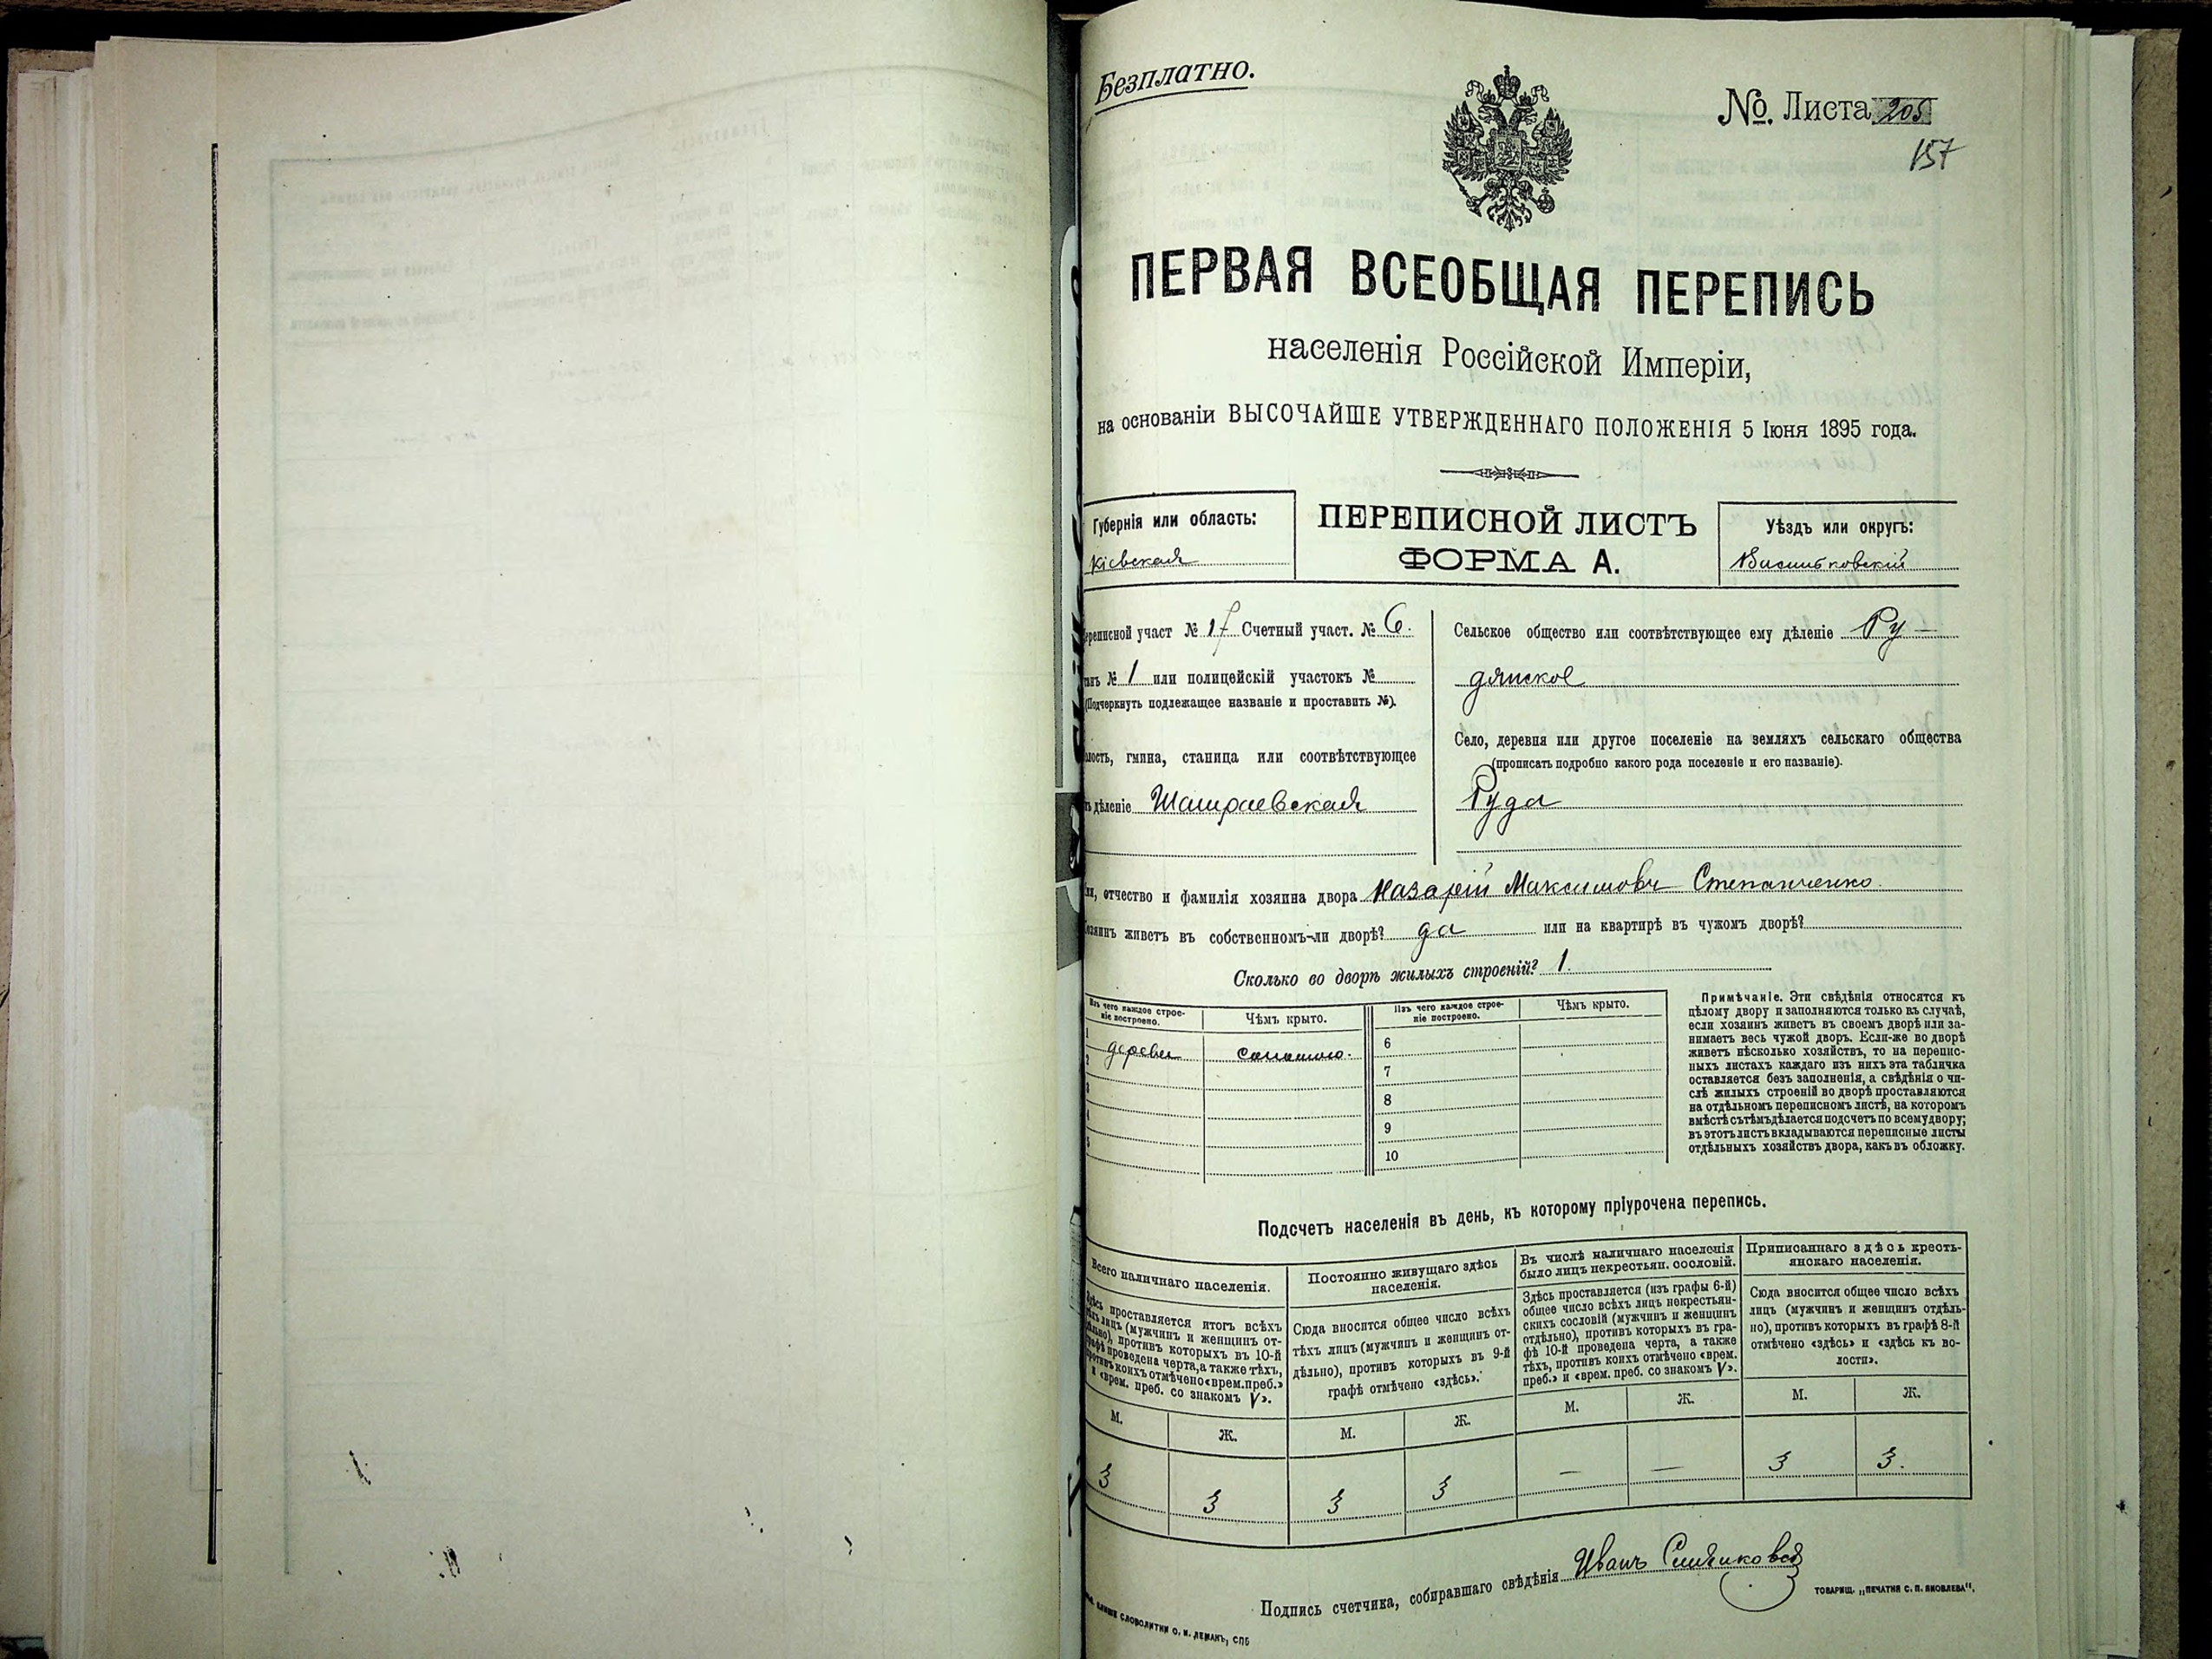 Безплатно.
№. Листа 205
157
ПЕРВАЯ ВСЕОБЩАЯ ПЕРЕПИСЬ
населенія Россійской Имперіи,
на основаніи ВЫСОЧАЙШЕ УТВЕРЖДЕННАГО ПОЛОЖЕНІЯ 5 Іюня 1895 года.
Губернія или область:
Кіевская
ПЕРЕПИСНОЙ ЛИСТЪ
ФОРМА А.
Уѣздъ или округъ:
Васильковскій
ереписной участ № 17 Счетный участ. № 6.
анъ № 1 или полицейскій участокъ №
(Подчеркнуть подлежащее названіе и проставить №).
лость, гмина, станица или соотвѣтствующее
ъ дѣленіе Шамраевская
Сельское общество или соотвѣтствующее ему дѣленіе Ру-
дянское
Село, деревня или другое поселеніе на земляхъ сельскаго общества
(прописать подробно какого рода поселеніе и его названіе).
Руда
мя, отчество и фамилія хозяина двора Назарій Максимовъ Степанченко
озяинъ живетъ въ собственномъ-ли дворѣ? да или на квартирѣ въ чужомъ дворѣ?
Сколько во дворѣ жилыхъ строеній? 1.
Изъ чего каждое строе-
ніе построено.
Чѣмъ крыто.
Изъ чего каждое строе-
ніе построено.
Чѣмъ крыто.
1
дерева соломою.
2
3
4
5
6
7
8
9
10
Примѣчаніе. Эти свѣдѣнія относятся къ
цѣлому двору и заполняются только въ случаѣ,
если хозяинъ живетъ въ своемъ дворѣ или за-
нимаетъ весь чужой дворъ. Если-же во дворѣ
живетъ нѣсколько хозяйствъ, то на перепис-
ныхъ листахъ каждаго изъ нихъ эта табличка
оставляется безъ заполненія, а свѣдѣнія о чи-
слѣ жилыхъ строеній во дворѣ проставляются
на отдѣльномъ переписномъ листѣ, на которомъ
вмѣстѣ съ тѣмъ дѣлается подсчетъ по всему двору;
въ этотъ листъ вкладываются переписные листы
отдѣльныхъ хозяйствъ двора, какъ въ обложку.
Подсчетъ населенія въ день, къ которому пріурочена перепись.
Всего наличнаго населенія.
Здѣсь проставляется итогъ всѣхъ
тѣхъ лицъ (мужчинъ и женщинъ от-
дѣльно), противъ которыхъ въ 10-й
графѣ проведена черта, а также тѣхъ,
противъ коихъ отмѣчено «врем. преб.»
и «врем. преб. со знакомъ V».
М. Ж.
3 3
Постоянно живущаго здѣсь
населенія.
Сюда вносится общее число всѣхъ
тѣхъ лицъ (мужчинъ и женщинъ от-
дѣльно), противъ которыхъ въ 9-й
графѣ отмѣчено «здѣсь».
М. Ж.
3 3
Въ числѣ наличнаго населенія
было лицъ некрестьян. сословій.
Здѣсь проставляется (изъ графы 6-й)
общее число всѣхъ лицъ некрестьян-
скихъ сословій (мужчинъ и женщинъ
отдѣльно), противъ которыхъ въ гра-
фѣ 10-й проведена черта, а также
тѣхъ, противъ коихъ отмѣчено «врем.
преб.» и «врем. преб. со знакомъ V».
М. Ж.
— —
Приписаннаго здѣсь кресть-
янскаго населенія.
Сюда вносится общее число всѣхъ
лицъ (мужчинъ и женщинъ отдѣль-
но), противъ которыхъ въ графѣ 8-й
отмѣчено «здѣсь» и «здѣсь къ во-
лости».
М. Ж.
3 3.
Подпись счетчика, собиравшаго свѣдѣнія Иванъ
СЛОВОЛИТНИ О. И. ЛЕМАНЪ, СПБ
ТОВАРИЩ. „ПЕЧАТНЯ С. П. ЯКОВЛЕВА".